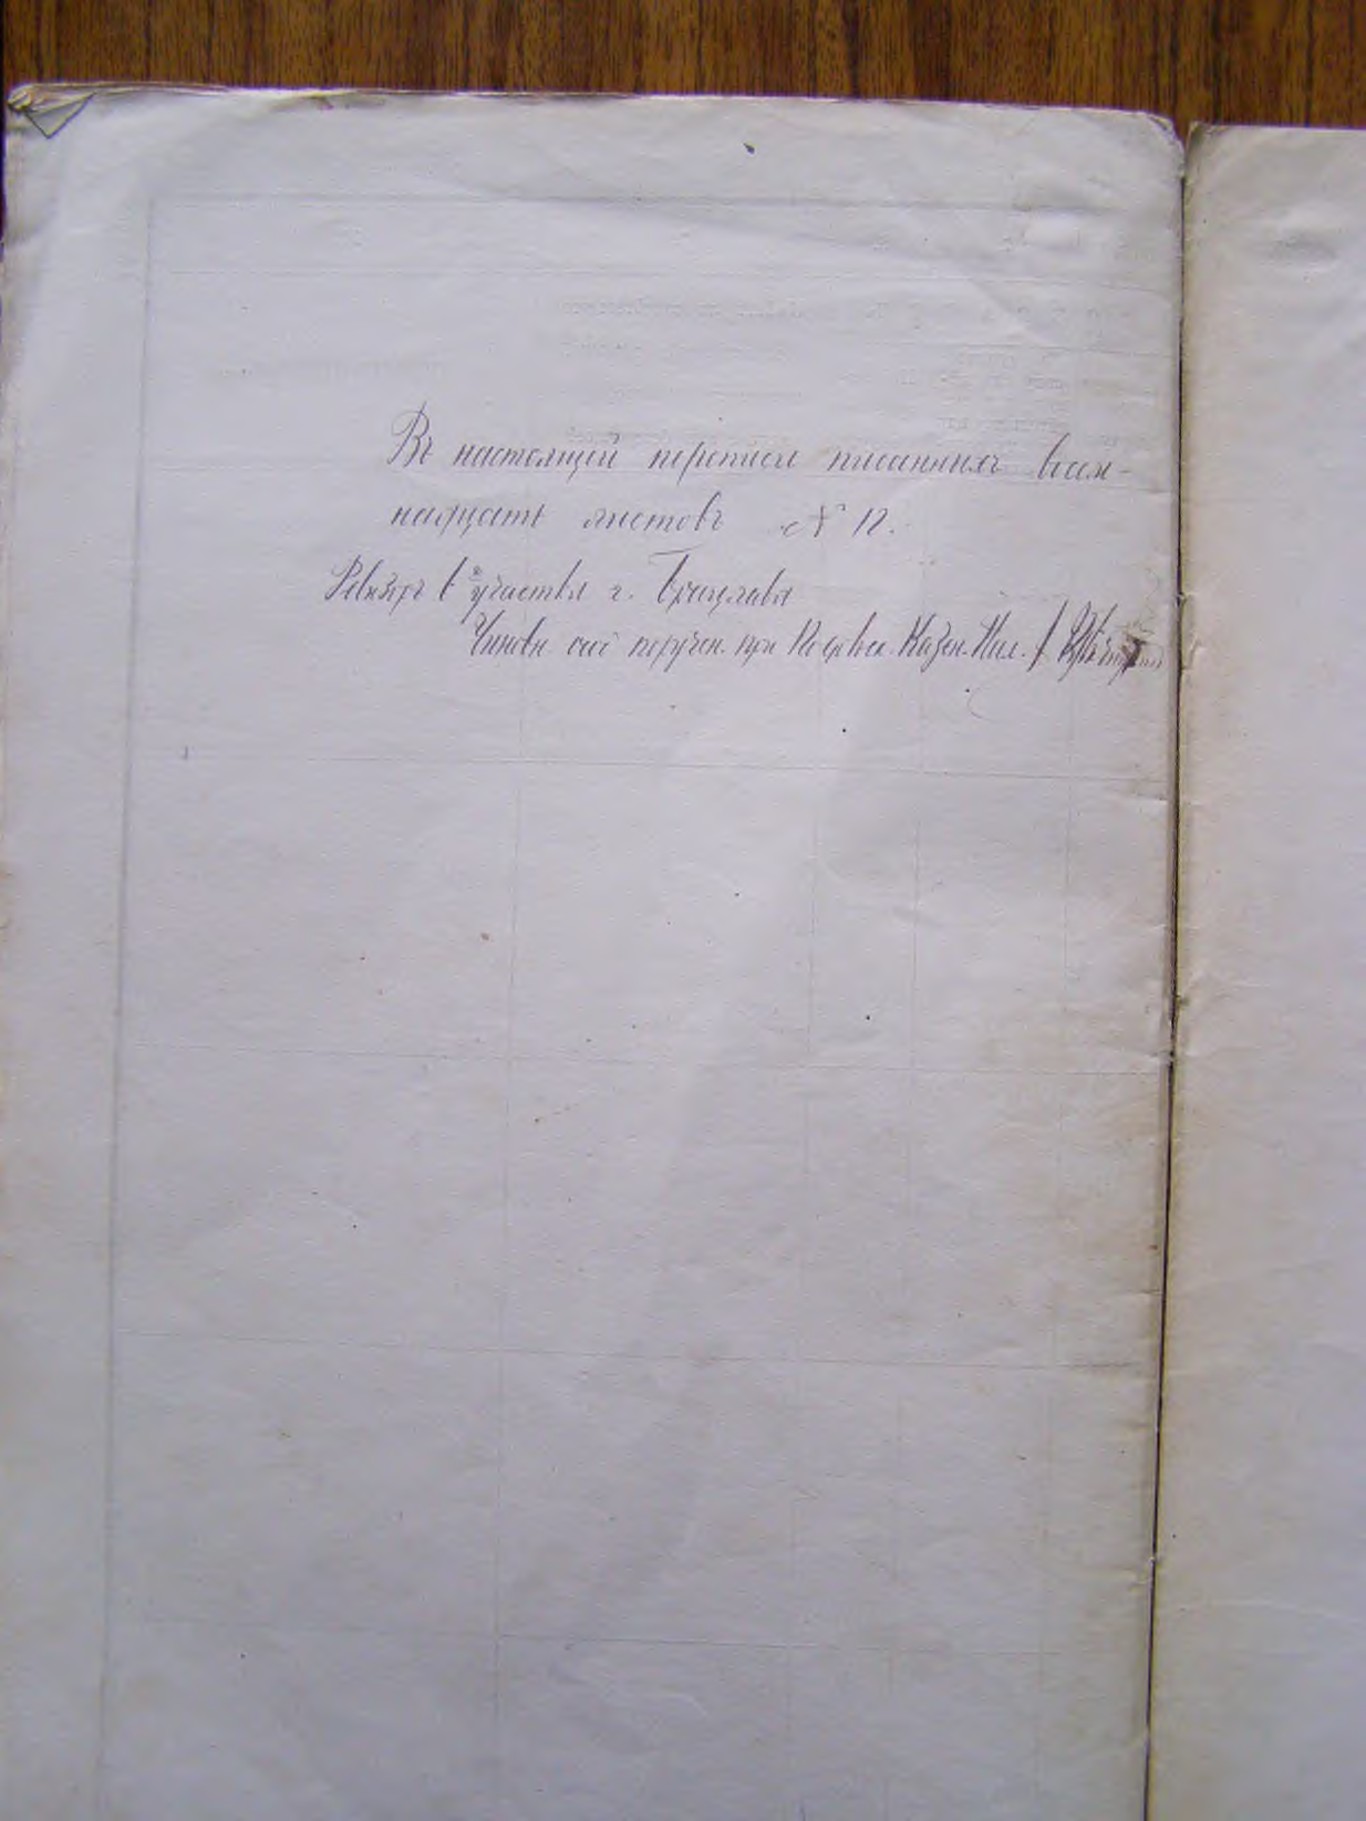 Въ настоящей переписи писанныхъ восем-
надцать листовъ № 12.
Ревизоръ 6 участка г. Брацлава
Чиновн. особ. поручен. при Подольск. Казен. Пал.